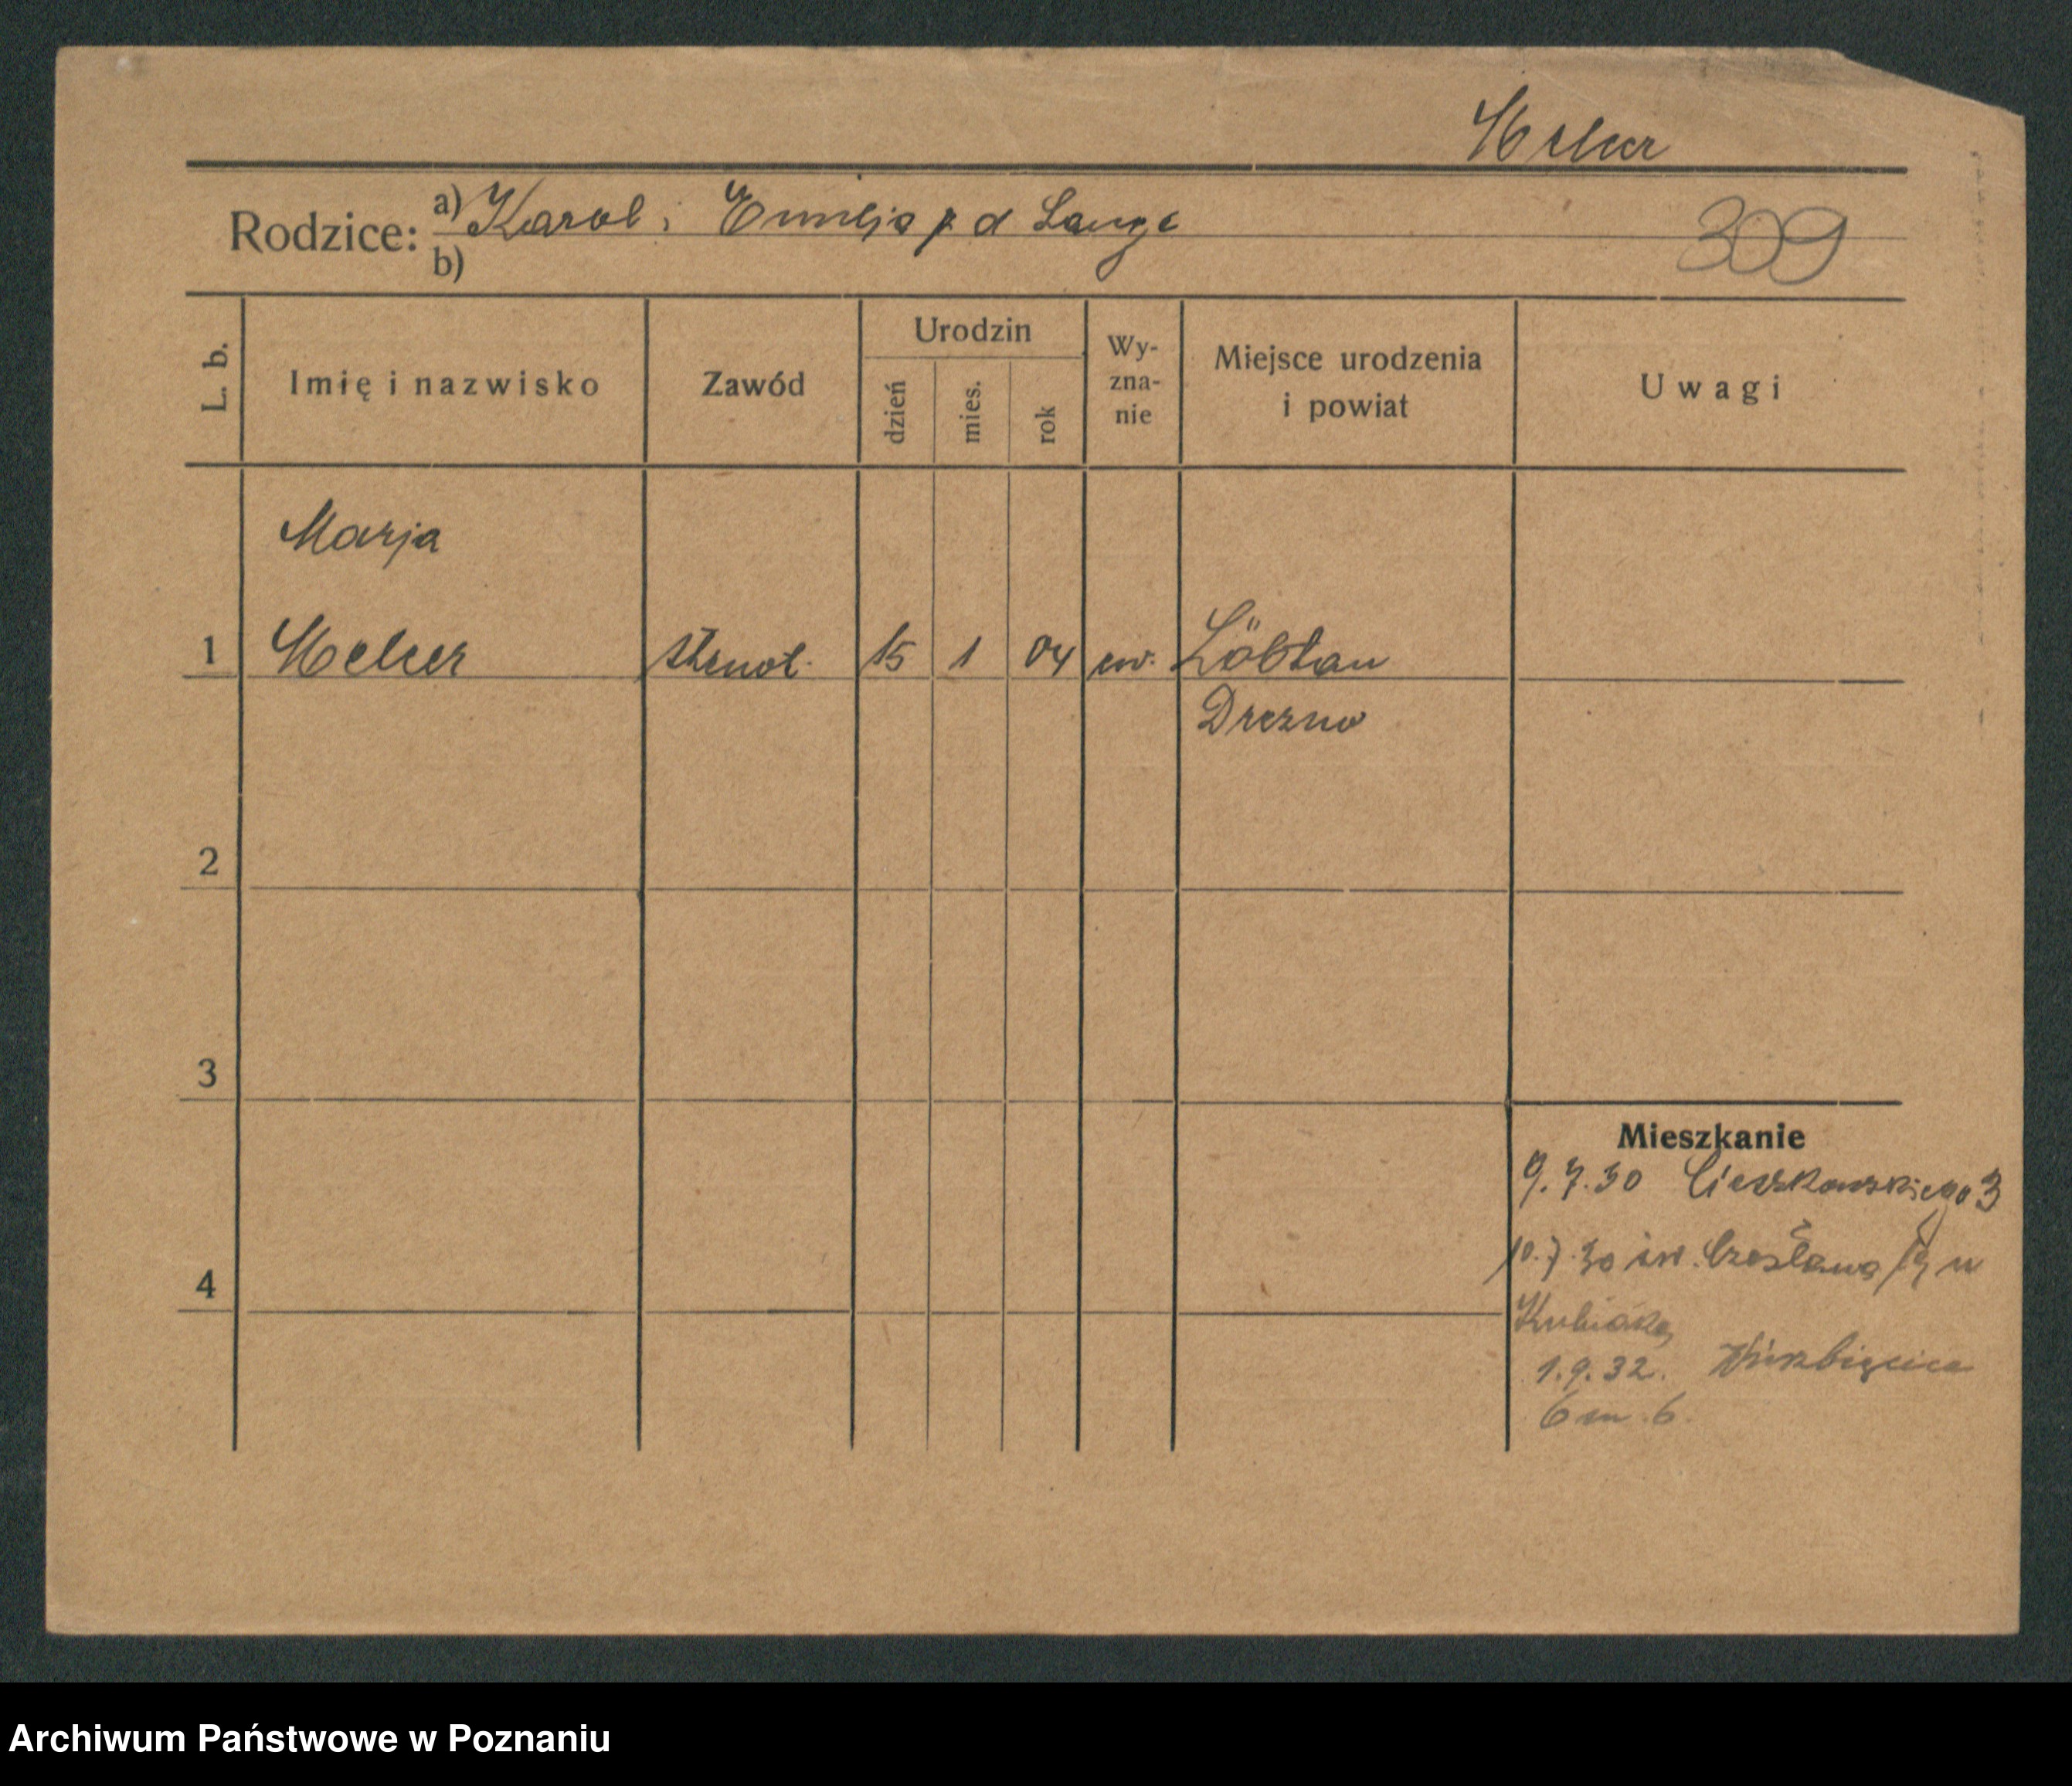 Heller
Rodzice: a) Karol i Emilja z d Lange
309
b)
L. b.
Imię i nazwisko
Zawód
Urodzin
dzień
mies.
rok
Wy-
zna-
nie
Miejsce urodzenia
i powiat
Uwagi
Marja
1 Heller stenot. 15 1 04 ew. Löbtau
Drezno
2
3
Mieszkanie
9.7.30 Cieszkowskiego 3
10.7.30 św. Czesława
4
Kubiaka
1.9.32. Wierzbięcice
6 m. 6.
Archiwum Państwowe w Poznaniu